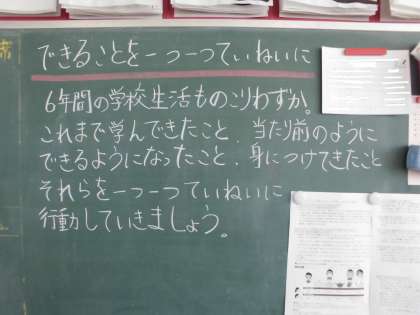 できることを一つ一つていねいに
6年間の学校生活ものこりわずか。
これまで学んできたこと、当たり前のように
できるようになったこと、身につけてきたこと
それらを一つ一つていねいに
行動していきましょう。